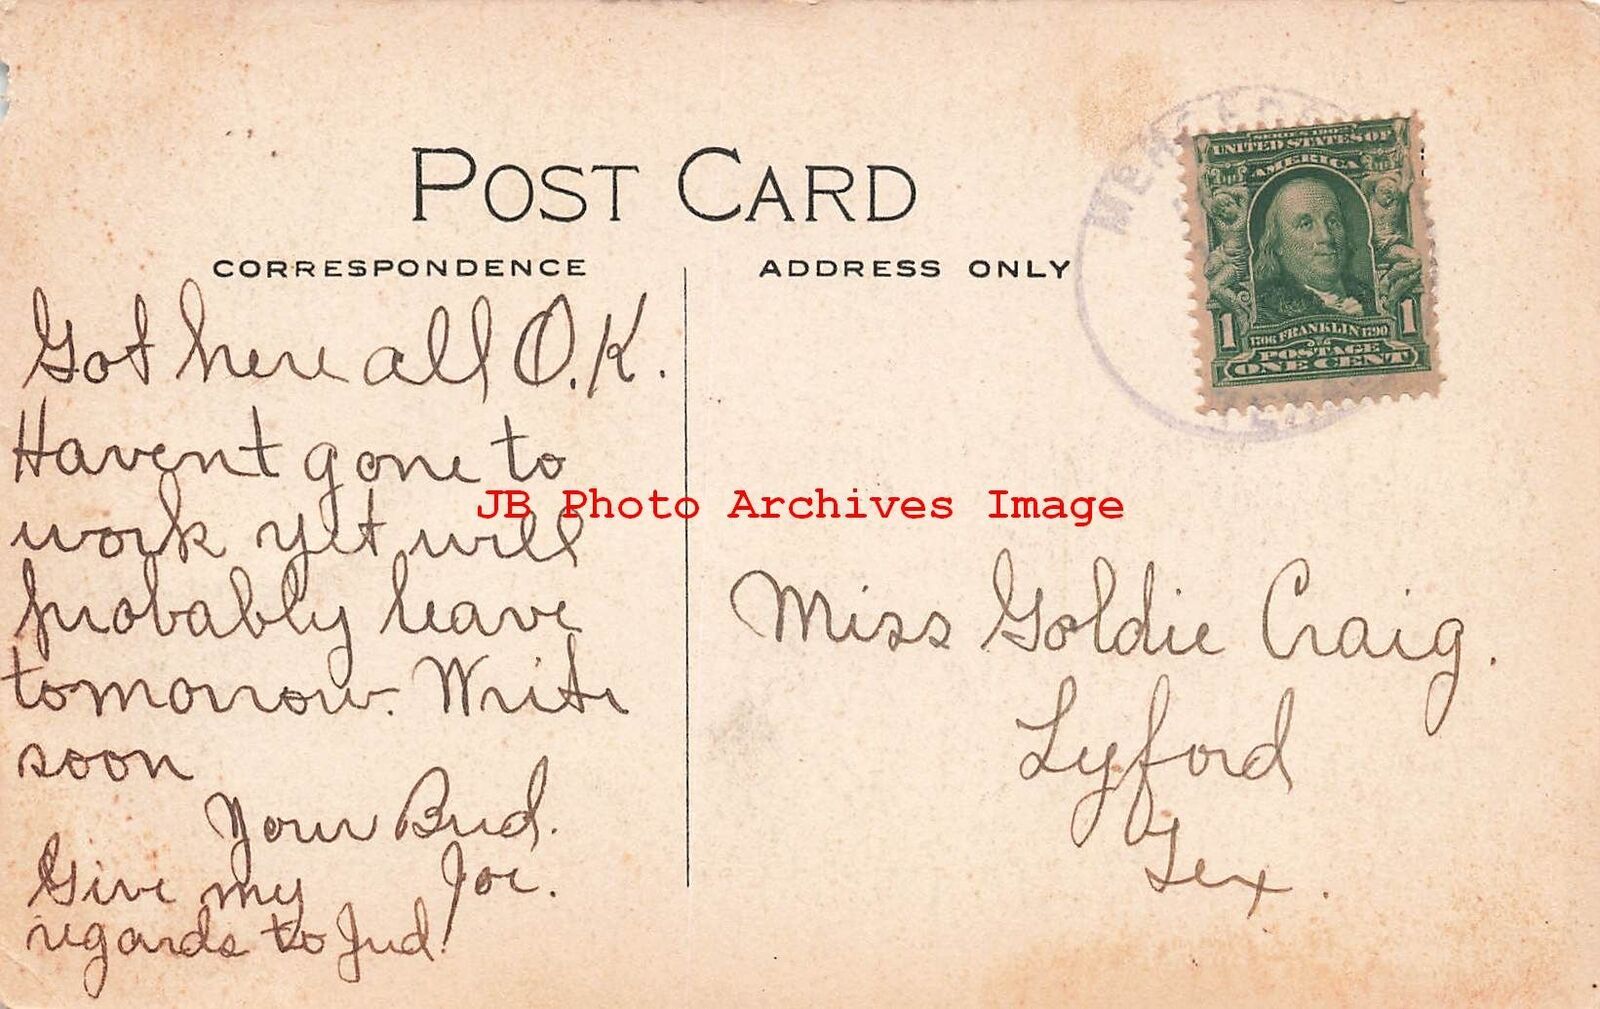 POST CARD
CORRESPONDENCE
ADDRESS ONLY
Got here all O.K.
Havent gone to
work yet will
probably leave
tomorrow. Write
soon
Your Bud.
Joe.
Give my
regards to Jud.
Miss Goldie Craig.
Lyford
Tex.
SERIES 1902
UNITED STATES OF
AMERICA
1 1
1706 FRANKLIN 1790
POSTAGE
ONE CENT
JB Photo Archives Image